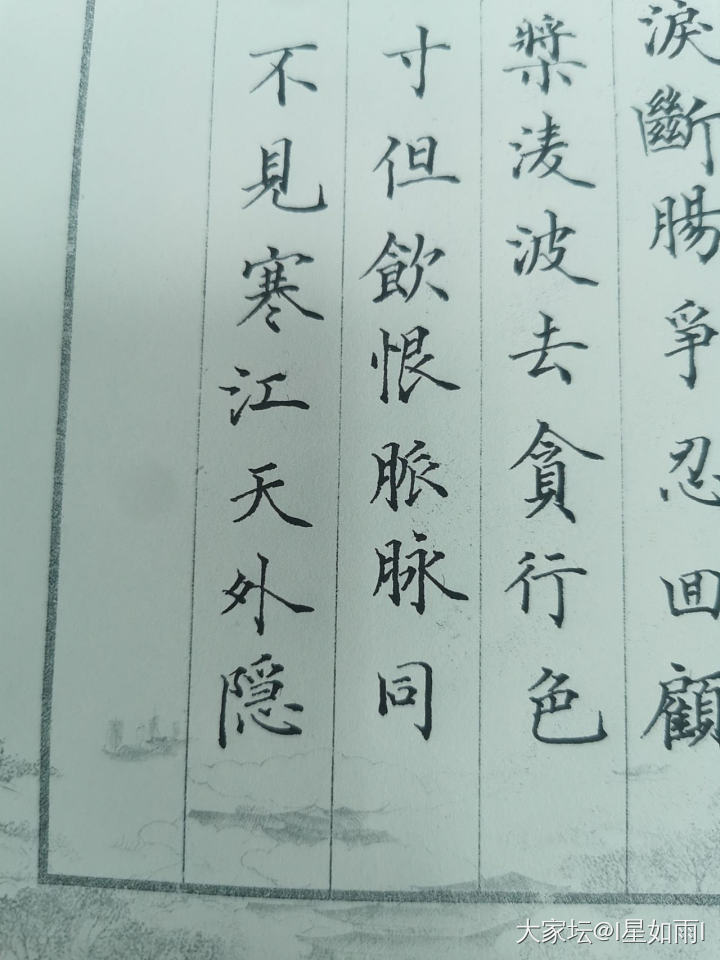 淚斷腸爭忍回顧
槳淩波去貪行色
寸但飲恨脈脉同
不見寒江天外隱
大家坛@l星如雨l